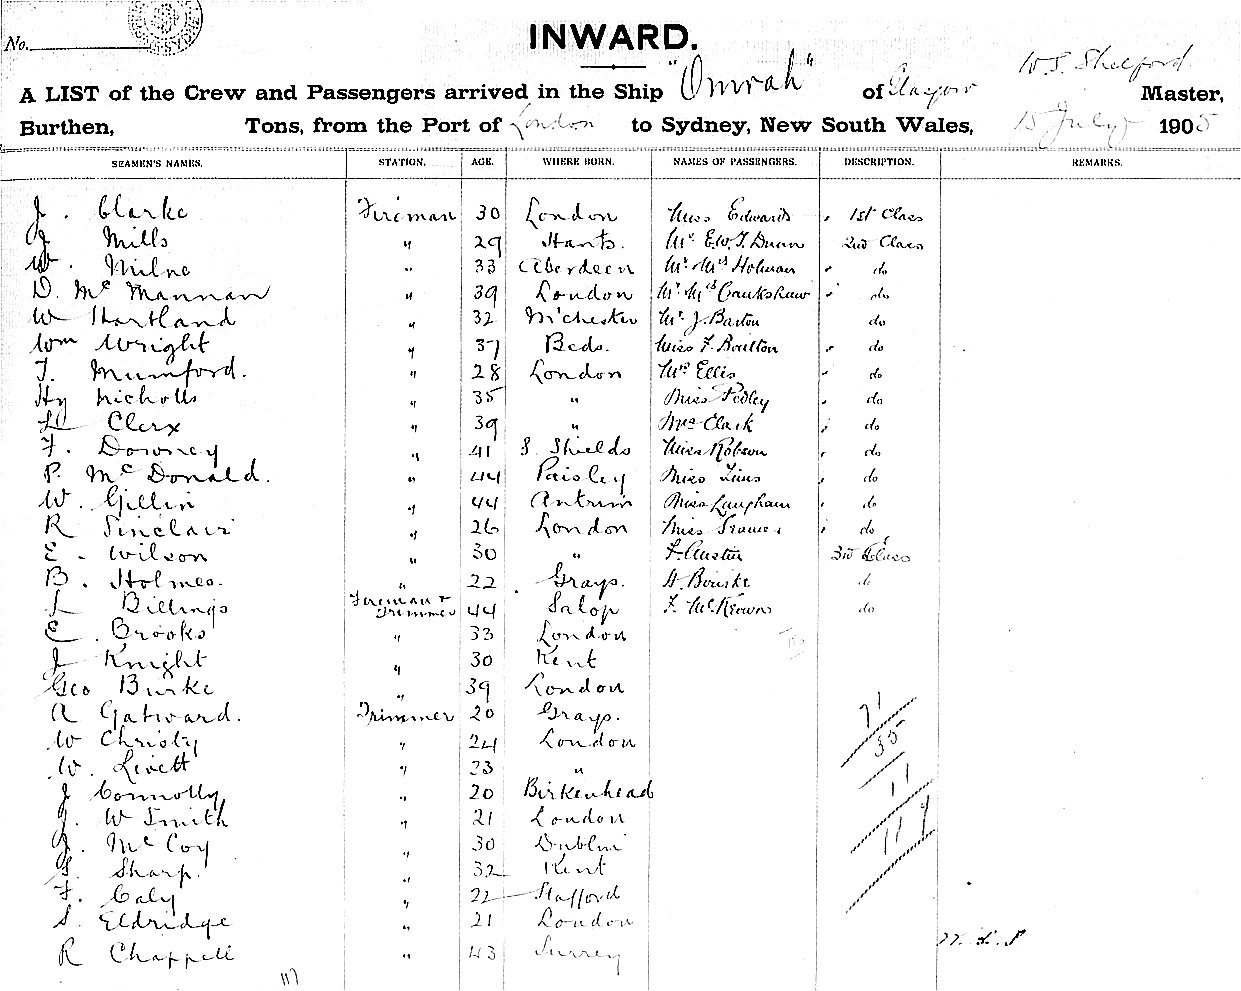 No.
INWARD.
A LIST of the Crew and Passengers arrived in the Ship "Omrah" of Glasgow W.S. Shelford Master,
Burthen, Tons, from the Port of London to Sydney, New South Wales, 15 July 1905
SEAMEN'S NAMES. STATION. AGE. WHERE BORN. NAMES OF PASSENGERS. DESCRIPTION. REMARKS.
J. Clarke Fireman 30 London Miss Edwards 1st Class
J Mills " 29 Hants. Mr E.W.T. Dunn 2nd Class
W. Milne " 33 Aberdeen Mr. Mrs Holman do
D. Mc Mannan " 39 London Mr. Mrs Cruikshaw do
W Hartland " 32 M'chester Mr J. Barton do
Wm Wright " 37 Beds. Miss F. Boulton do
T. Mumford. " 28 London Mrs Ellis do
Hy Nicholls " 35 " Miss Pedley do
Clerx " 39 " Mrs Clark do
F. Downey " 41 S. Shields Miss Robson do
P. McDonald. " 44 Paisley Miss do
W. Gillin " 44 Antrim Miss Langham do
R Sinclair " 26 London Miss do
E. Wilson " 30 " F. Austin 3rd Class
B. Holmes. " 22 Grays. H. Bourke do
L Billings Fireman & Trimmer 44 Salop F. McKeown do
E. Brooks " 33 London
J Knight " 30 Kent
Geo Burke " 39 London
A Gatward. Trimmer 20 Grays.
W Christy " 24 London
W. Livett " 23 "
J Connolly " 20 Birkenhead
J. W Smith " 21 London
J. McCoy " 30 Dublin
S. Sharp. " 32 Kent
F. Caly " 22 Stafford
S. Eldridge " 21 London
R Chappell " 43 Surrey
71
35
11
117
117